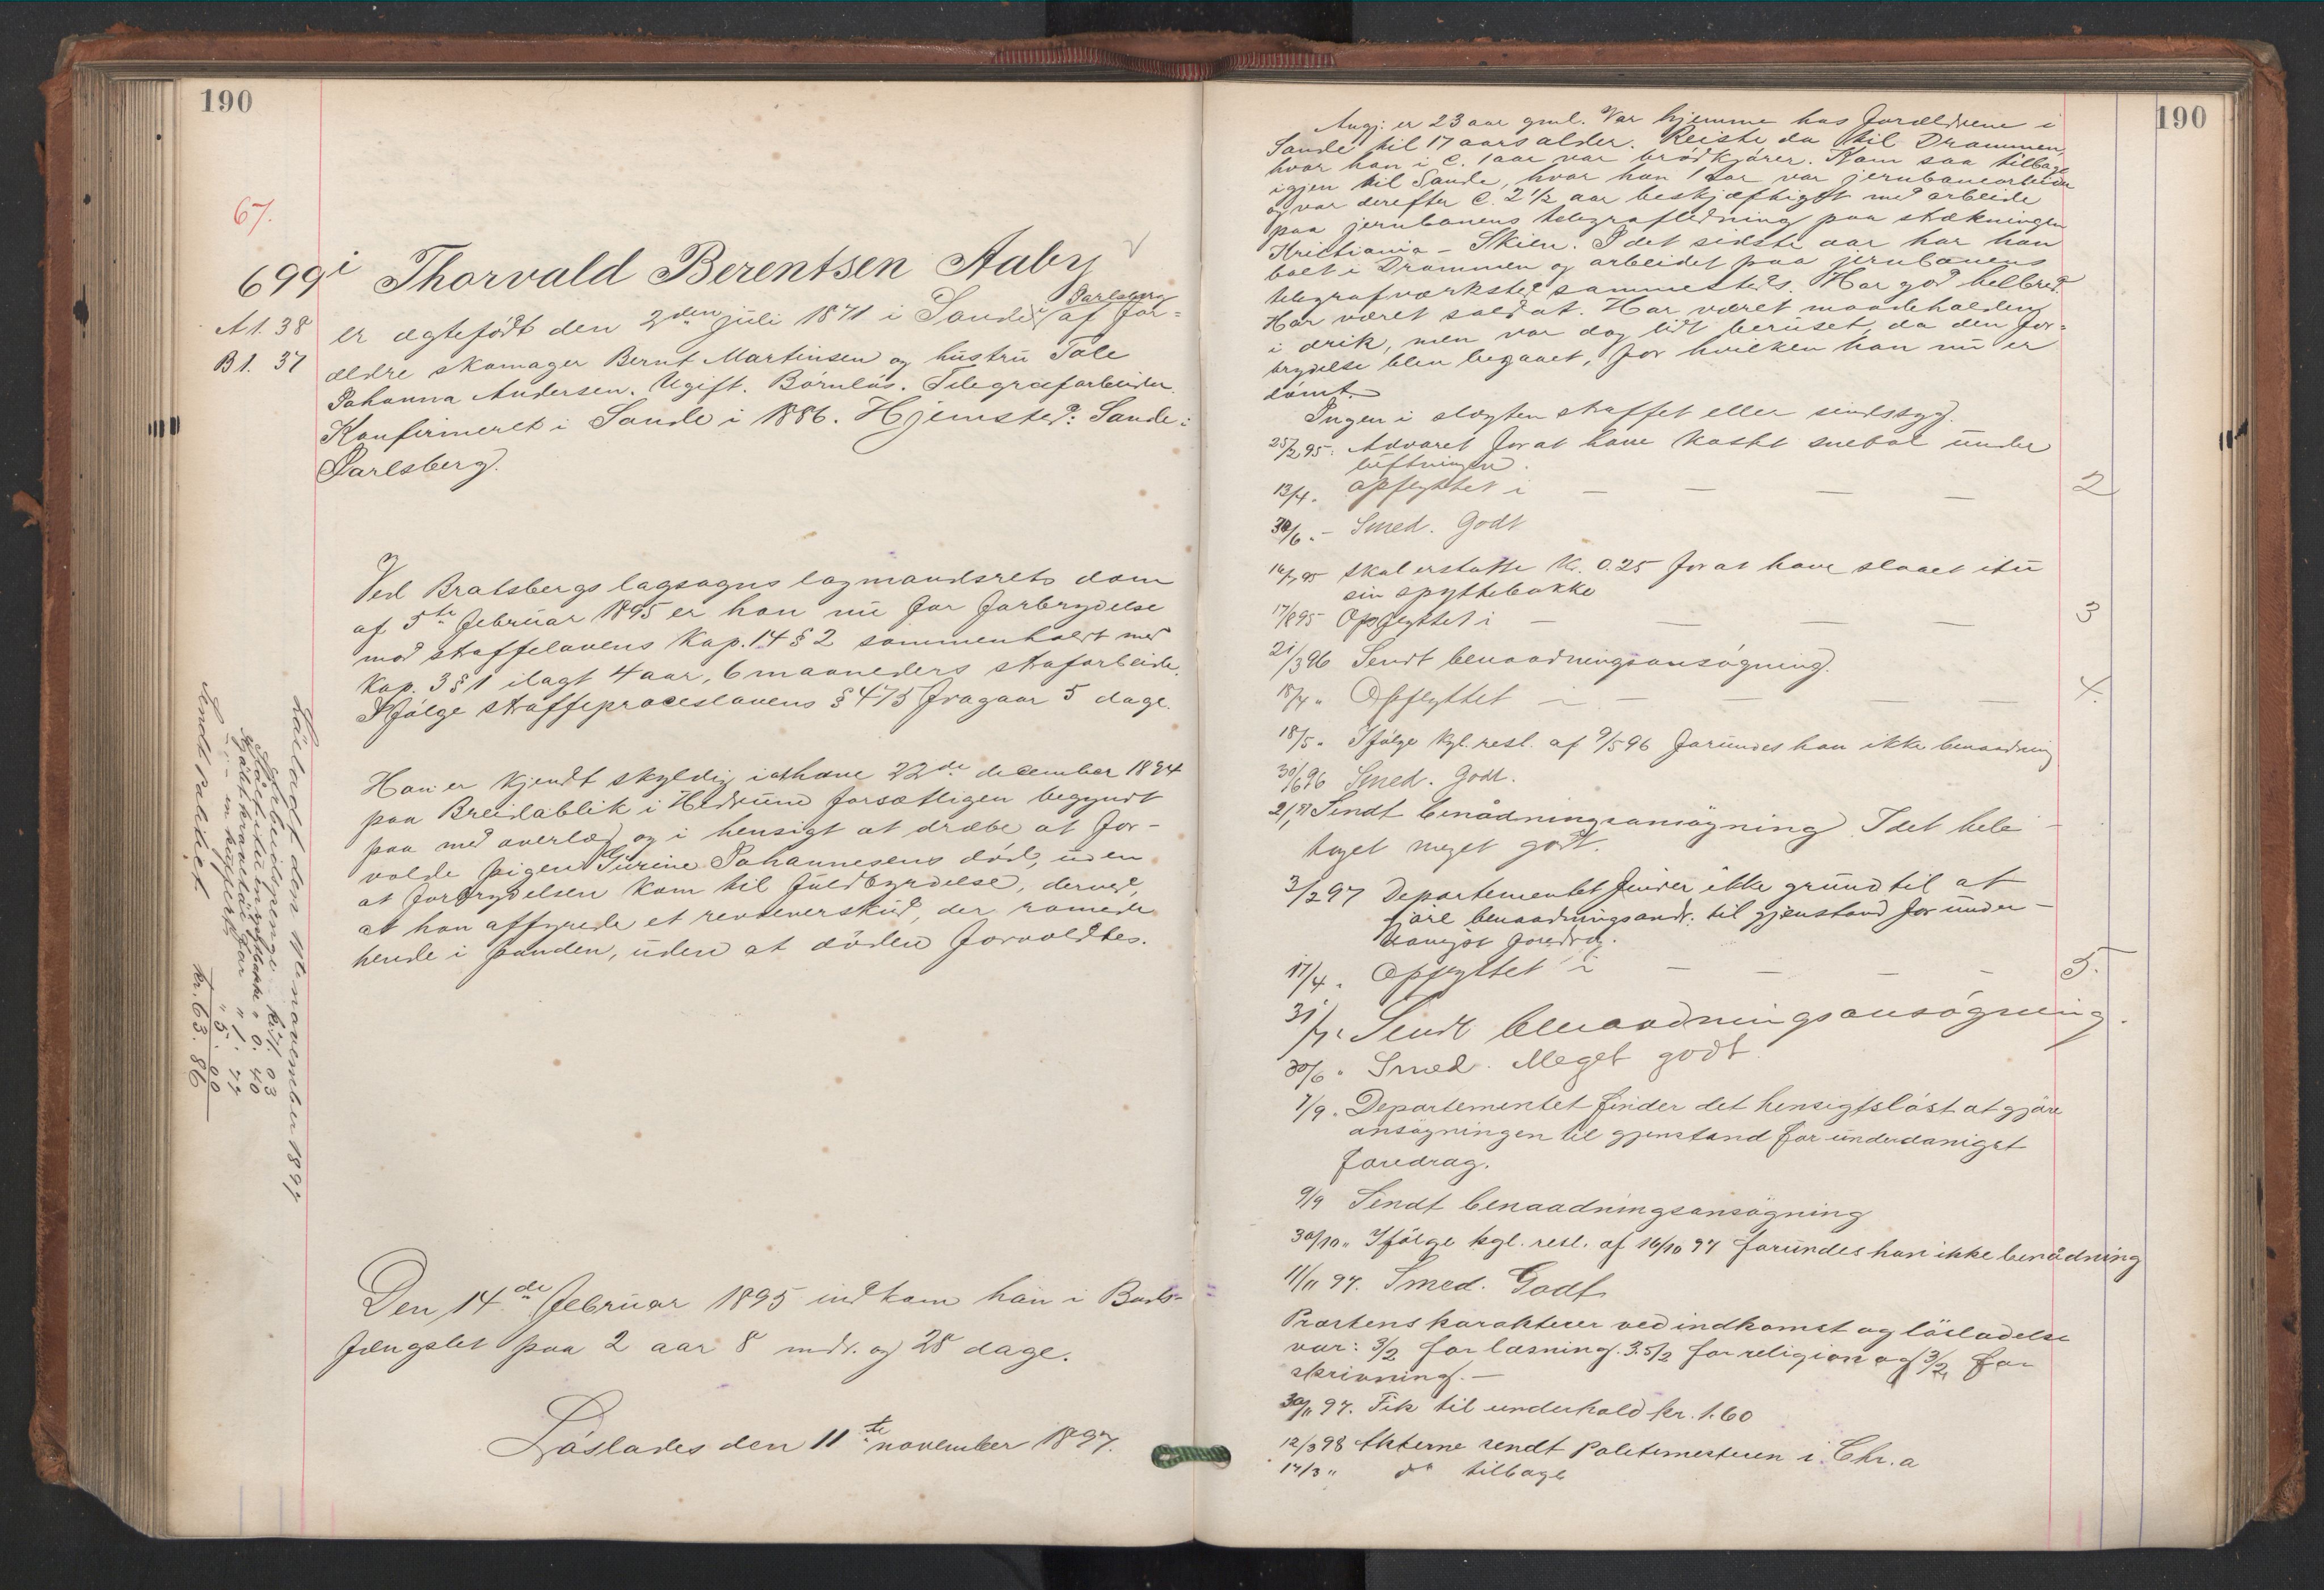 190
67.
699 i Thorvald Berentsen Aaby
A 1. 38
B 1. 37
er ægtefødt den 2den juli 1871 i Sande i Jarlsberg af for=
ældre skomager Bernt Martinsen og hustru Tale
Johanna Andersen. Ugift. Børnløs. Telegrafarbeider.
Konfirmeret i Sande i 1886. Hjemsted: Sande i
Jarlsberg.
Ved Bratsbergs lagsogns lagmandsrets dom
af 5te februar 1895 er han nu for forbrydelse
mod straffelovens kap. 14 § 2 sammenholdt med
kap. 3 § 1 ilagt 4 aar, 6 maaneders strafarbeide.
Ifølge straffeproceslovens § 475 fragaar 5 dage.
Han er kjendt skyldig i at have 22de december 1894
paa Breidablik i Hedrum forsætligen begyndt
paa med overlæg og i hensigt at dræbe at for-
volde pigen Gurine Johannesens død, uden
at forbrydelsen kom til fuldbyrdelse, derved,
at han affyrede et revolverskud, der ramede
hende i panden, uden at døden forvoldtes.
Den 14de februar 1895 indkom han i Bods-
fængslet paa 2 aar 8 mdr. og 28 dage.
Løslades den 11te november 1897.
Løsladt den 11te november 1897
Arbeidspenge kr. 71. 03
Slaaet itu en spyttebakke " 0. 40
" 1. 77
" 5. 00
Sendt politiet kr. 63. 86
190
Angj: er 23 aar gml. Var hjemme hos forældrene i
Sande til 17 aars alder. Reiste da til Drammen,
hvor han i c. 1 aar var brødkjører. Kom saa tilbage
igjen til Sande, hvor han 1 aar var jernbanearbeider
og var derefter c. 2 1/2 aar beskjæftiget med arbeide
paa jernbanens telegrafledning paa strækningen
Kristiania - Skien. I det sidste aar har han
boet i Drammen og arbeidet paa jernbanens
telegrafværksted sammesteds. Har god helbred.
Har været soldat. Har været maadeholden
i drik, men var dog lidt beruset, da den for=
brydelse blev begaaet, for hvilken han nu er
dømt. —
Ingen i slægten straffet eller sindssyg.
25/2 95. Advaret for at have kastet snebol under
luftningen.
13/4. opflyttet i — — — — 2
30/6. - Smed. Godt
16/7 95 Skal erstatte Kr. 0.25 for at have slaaet itu
sin spyttebakke
17/8 95 Opflyttet i — — — — 3
21/3 96 Sendt benaadningsansøgning.
18/4 " Opflyttet i — — — — 4.
18/5 " Ifølge kgl. resl. af 9/5 96 forundes han ikke benaadning
30/6 96 Smed. Godt.
2/1 97 Sendt benådningsansøgning. I det hele
taget meget godt.
3/2 97 Departementet finder ikke grund til at
gjøre benaadningsandr. til gjenstand for under-
danigst foredrag.
17/4 " Opflyttet i — — — — 5.
31/7 " Sendt benaadningsansøgning.
30/6 " Smed. Meget godt.
7/9 " Departementet finder det hensigtsløst at gjøre
ansøgningen til gjenstand for underdanigst
foredrag.
9/9 Sendt benaadningsansøgning
30/10 " Ifølge kgl. resl. af 16/10 97 forundes han ikke benådning
11/11 97. Smed. Godt
Præstens karakterer ved indkomst og løsladelse
var: 3/2 for læsning. 3.5/2 for religion og 3/2 for
skrivning. —
30/11 97. Fik til underhold kr. 1.60
12/3 98 Akterne sendt Politimesteren i Chr.a
17/3 " do tilbage